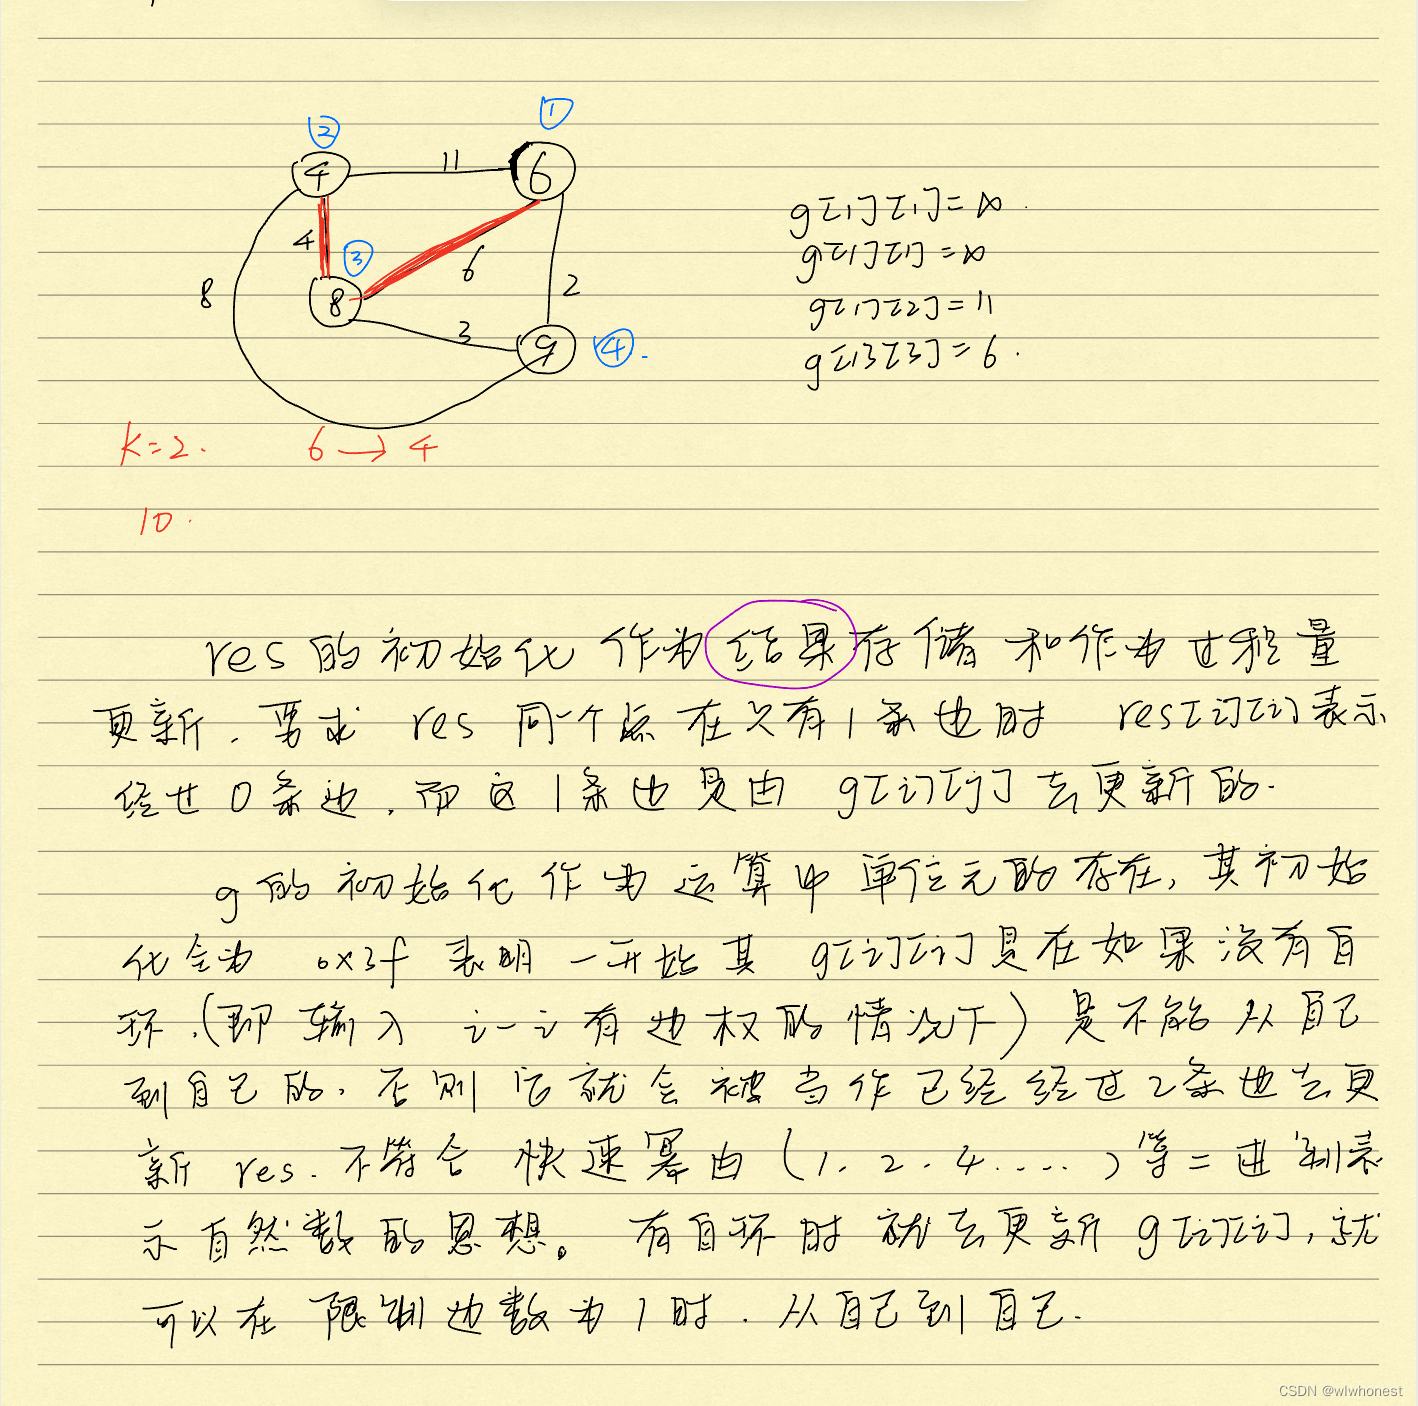 ②
①
4
11
6
g[1][1]=∞.
4
③
6
g[1][1]=∞
8
8
2
g[1][2]=11
3
9
④.
g[1][3]=6.
K=2.
6→4
10.
res的初始化 作为结果存储和作为过程量
更新.要求 res 同一个点在只有1条边时 res[i][i]表示
经过0条边.而这1条边是由 g[i][j]去更新的.
g的初始化作为运算中单位元的存在,其初始
化全为 0x3f 表明一开始其 g[i][i]是在如果没有自
环.(即输入 i-i有边权的情况下)是不能从自己
到自己的.否则它就会被当作已经经过2条边去更
新 res.不符合 快速幂由(1.2.4.....)等二进制表
示自然数的思想。有自环时就去更新 g[i][i],就
可以在限制边数为1时.从自己到自己.
CSDN @wlwhonest